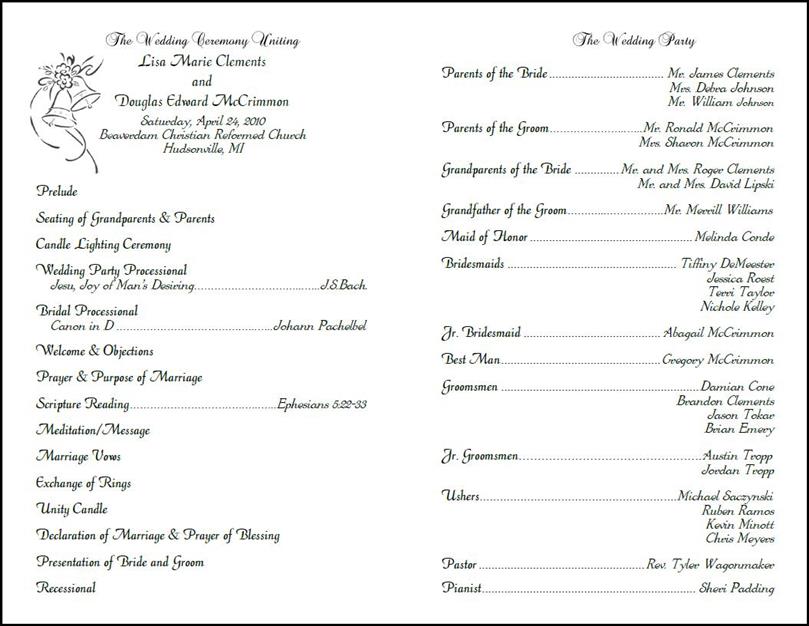 The Wedding Ceremony Uniting
Lisa Marie Clements
and
Douglas Edward McCrimmon
Saturday, April 24, 2010
Beaverdam Christian Reformed Church
Hudsonville, MI
Prelude
Seating of Grandparents & Parents
Candle Lighting Ceremony
Wedding Party Processional
Jesu, Joy of Man's Desiring....................J.S.Bach.
Bridal Processional
Canon in D....................Johann Pachelbel
Welcome & Objections
Prayer & Purpose of Marriage
Scripture Reading....................Ephesians 5:22-33
Meditation/Message
Marriage Vows
Exchange of Rings
Unity Candle
Declaration of Marriage & Prayer of Blessing
Presentation of Bride and Groom
Recessional
The Wedding Party
Parents of the Bride....................Mr. James Clements
Mrs. Debra Johnson
Mr. William Johnson
Parents of the Groom....................Mr. Ronald McCrimmon
Mrs. Sharon McCrimmon
Grandparents of the Bride....................Mr. and Mrs. Roger Clements
Mr. and Mrs. David Lipski
Grandfather of the Groom....................Mr. Merrill Williams
Maid of Honor....................Melinda Conde
Bridesmaids....................Tiffiny DeMeester
Jessica Roest
Terri Taylor
Nichole Kelley
Jr. Bridesmaid....................Abagail McCrimmon
Best Man....................Gregory McCrimmon
Groomsmen....................Damian Cone
Brandon Clements
Jason Tokar
Brian Emery
Jr. Groomsmen....................Austin Tropp
Jordan Tropp
Ushers....................Michael Saczynski
Ruben Ramos
Kevin Minott
Chris Meyers
Pastor....................Rev. Tyler Wagonmaker
Pianist....................Sheri Padding